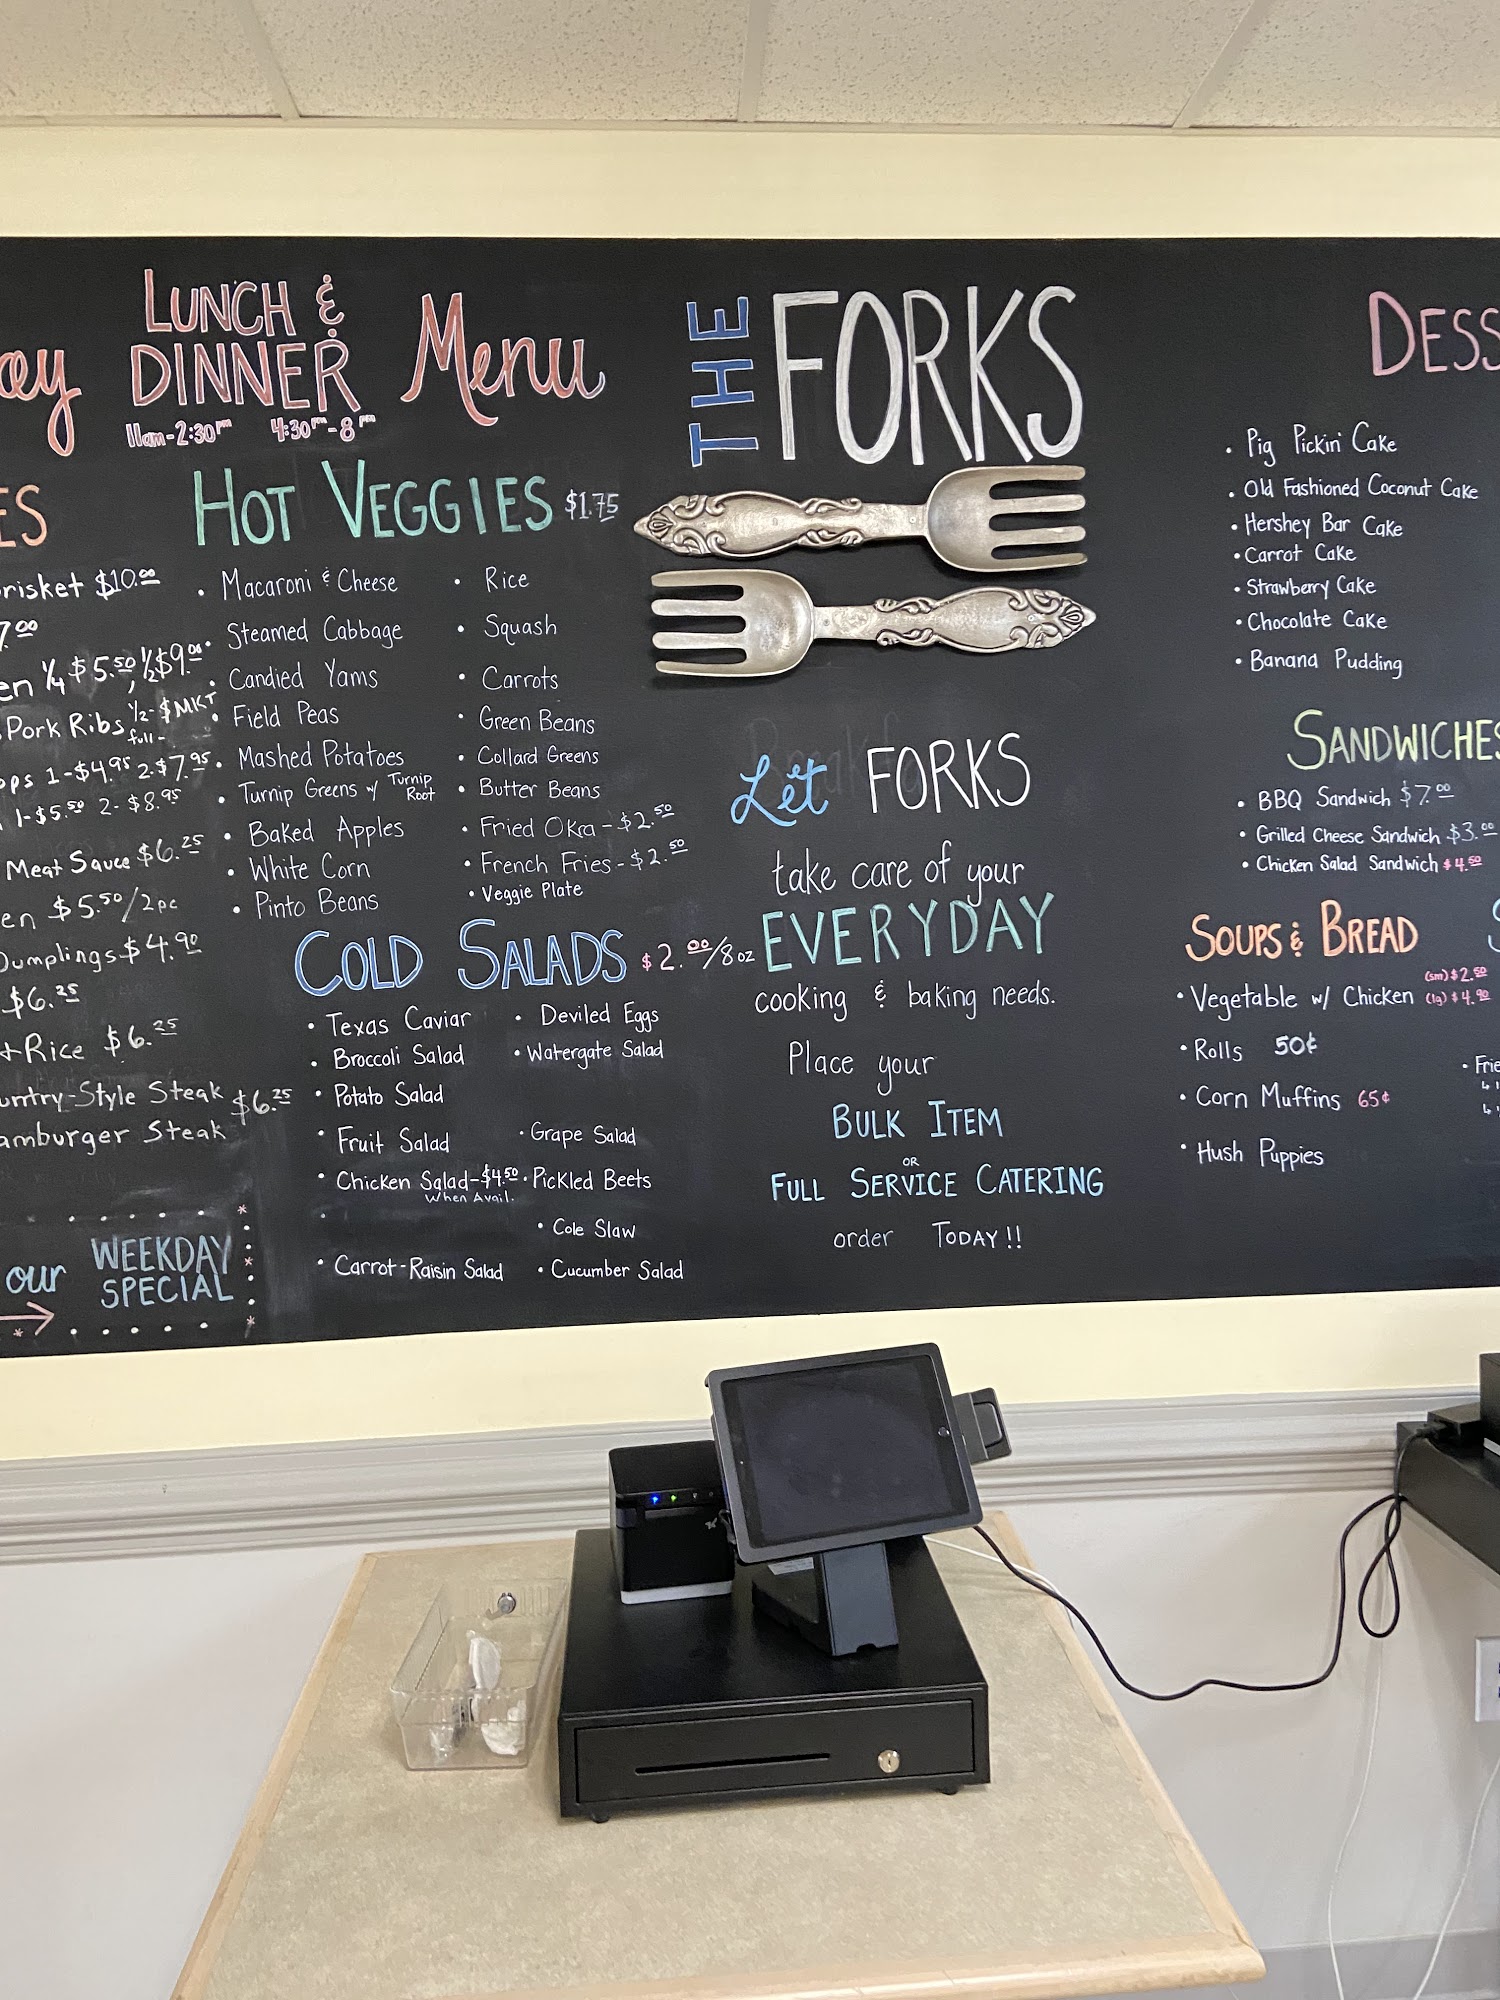 LUNCH &
DINNER
Menu
11am-2:30pm 4:30pm-8pm
ES
risket $10.00
7.00
en 1/4 $5.50, 1/2 $9.00
Pork Ribs 1/2- $MKT
full-
ops 1-$4.95 2-$7.95
1-$5.50 2-$8.95
Meat Sauce $6.25
en $5.50/2pc
Dumplings $4.90
$6.25
+Rice $6.25
untry-Style Steak $6.25
amburger Steak
our WEEKDAY
SPECIAL
HOT VEGGIES $1.75
• Macaroni & Cheese
• Steamed Cabbage
• Candied Yams
• Field Peas
• Mashed Potatoes
• Turnip Greens w/ Turnip
Root
• Baked Apples
• White Corn
• Pinto Beans
• Rice
• Squash
• Carrots
• Green Beans
• Collard Greens
• Butter Beans
• Fried Okra - $2.50
• French Fries - $2.50
• Veggie Plate
COLD SALADS $2.00/8oz
• Texas Caviar
• Broccoli Salad
• Potato Salad
• Fruit Salad
• Chicken Salad-$4.50
When Avail.
• Carrot-Raisin Salad
• Deviled Eggs
• Watergate Salad
• Grape Salad
• Pickled Beets
• Cole Slaw
• Cucumber Salad
THE FORKS
Let FORKS
take care of your
EVERYDAY
cooking & baking needs.
Place your
BULK ITEM
OR
FULL SERVICE CATERING
order TODAY!!
DESS
• Pig Pickin' Cake
• Old Fashioned Coconut Cake
• Hershey Bar Cake
• Carrot Cake
• Strawberry Cake
• Chocolate Cake
• Banana Pudding
SANDWICHES
• BBQ Sandwich $7.00
• Grilled Cheese Sandwich $3.00
• Chicken Salad Sandwich $4.50
SOUPS & BREAD
• Vegetable w/ Chicken (sm) $2.50
(lg) $4.90
• Rolls 50¢
• Corn Muffins 65¢
• Hush Puppies
• Frie